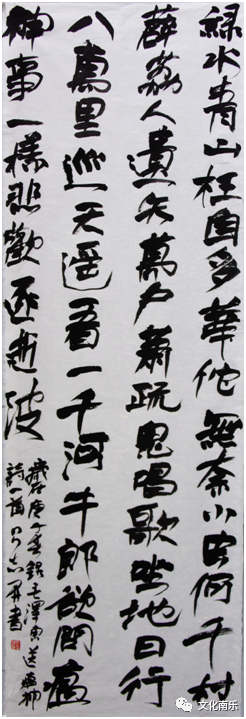 緑水青山枉自多華佗無奈小虫何千村
薜荔人遺矢萬户蕭疏鬼唱歌坐地日行
八萬里巡天遥看一千河牛郎欲問瘟
神事一樣悲歡逐逝波
歲在庚子春錄毛澤東送瘟神
詩一首吕志書
文化南乐